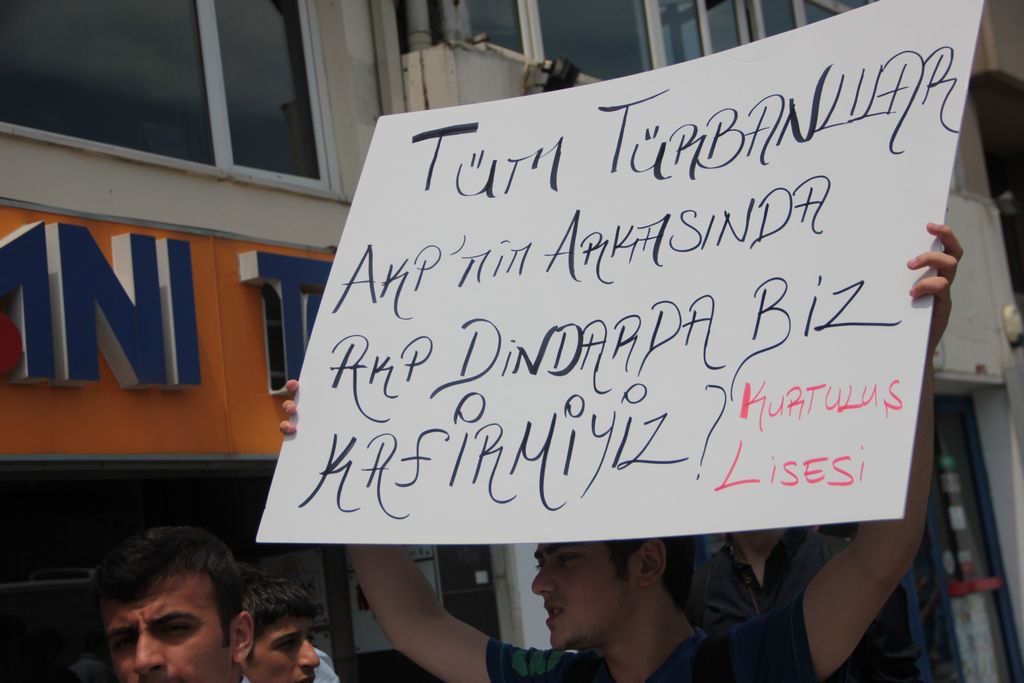 TÜM TÜRBANLILAR
AKP'NiN ARKASINDA
AKP DiNDARDA BiZ
KAFiRMiYiZ?
KURTULUŞ
LiSESi